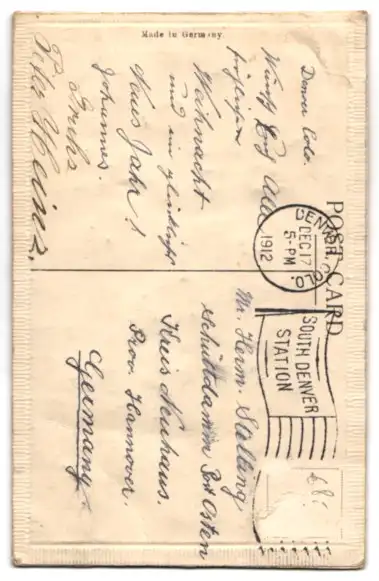 Made in Germany.
POST CARD
Denver Colo.
Wünsch Euch Alle
fröhliche
Weihnacht
und ein glückliches
Neues Jahr!
Johannes
Peter Heins.
DENVER, COLO.
DEC 17
5-PM
1912
SOUTH DENVER
STATION
Mr. Herm. Stelling
Schüttdamm Post Osten
Kreis Neuhaus.
Prov. Hannover.
Germany